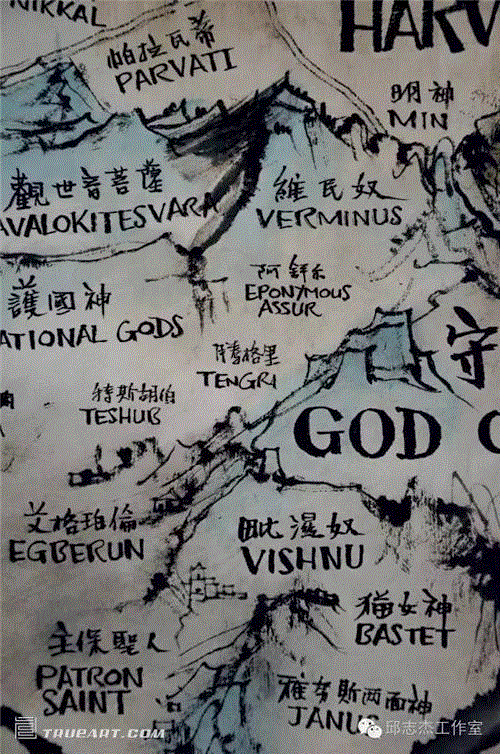 NIKKAL
HARV
帕拉瓦蒂
PARVATI
明神
MIN
觀世音菩薩
AVALOKITESVARA
維民奴
VERMINUS
護國神
ATIONAL GODS
EPONYMOUS
ASSUR
守
騰格里
TENGRI
特斯胡伯
TESHUB
GOD
艾格珀倫
EGBERUN
毗濕奴
VISHNU
貓女神
BASTET
主保聖人
PATRON
SAINT
雅努斯兩面神
JANU
TRUEART.COM
邱志杰工作室